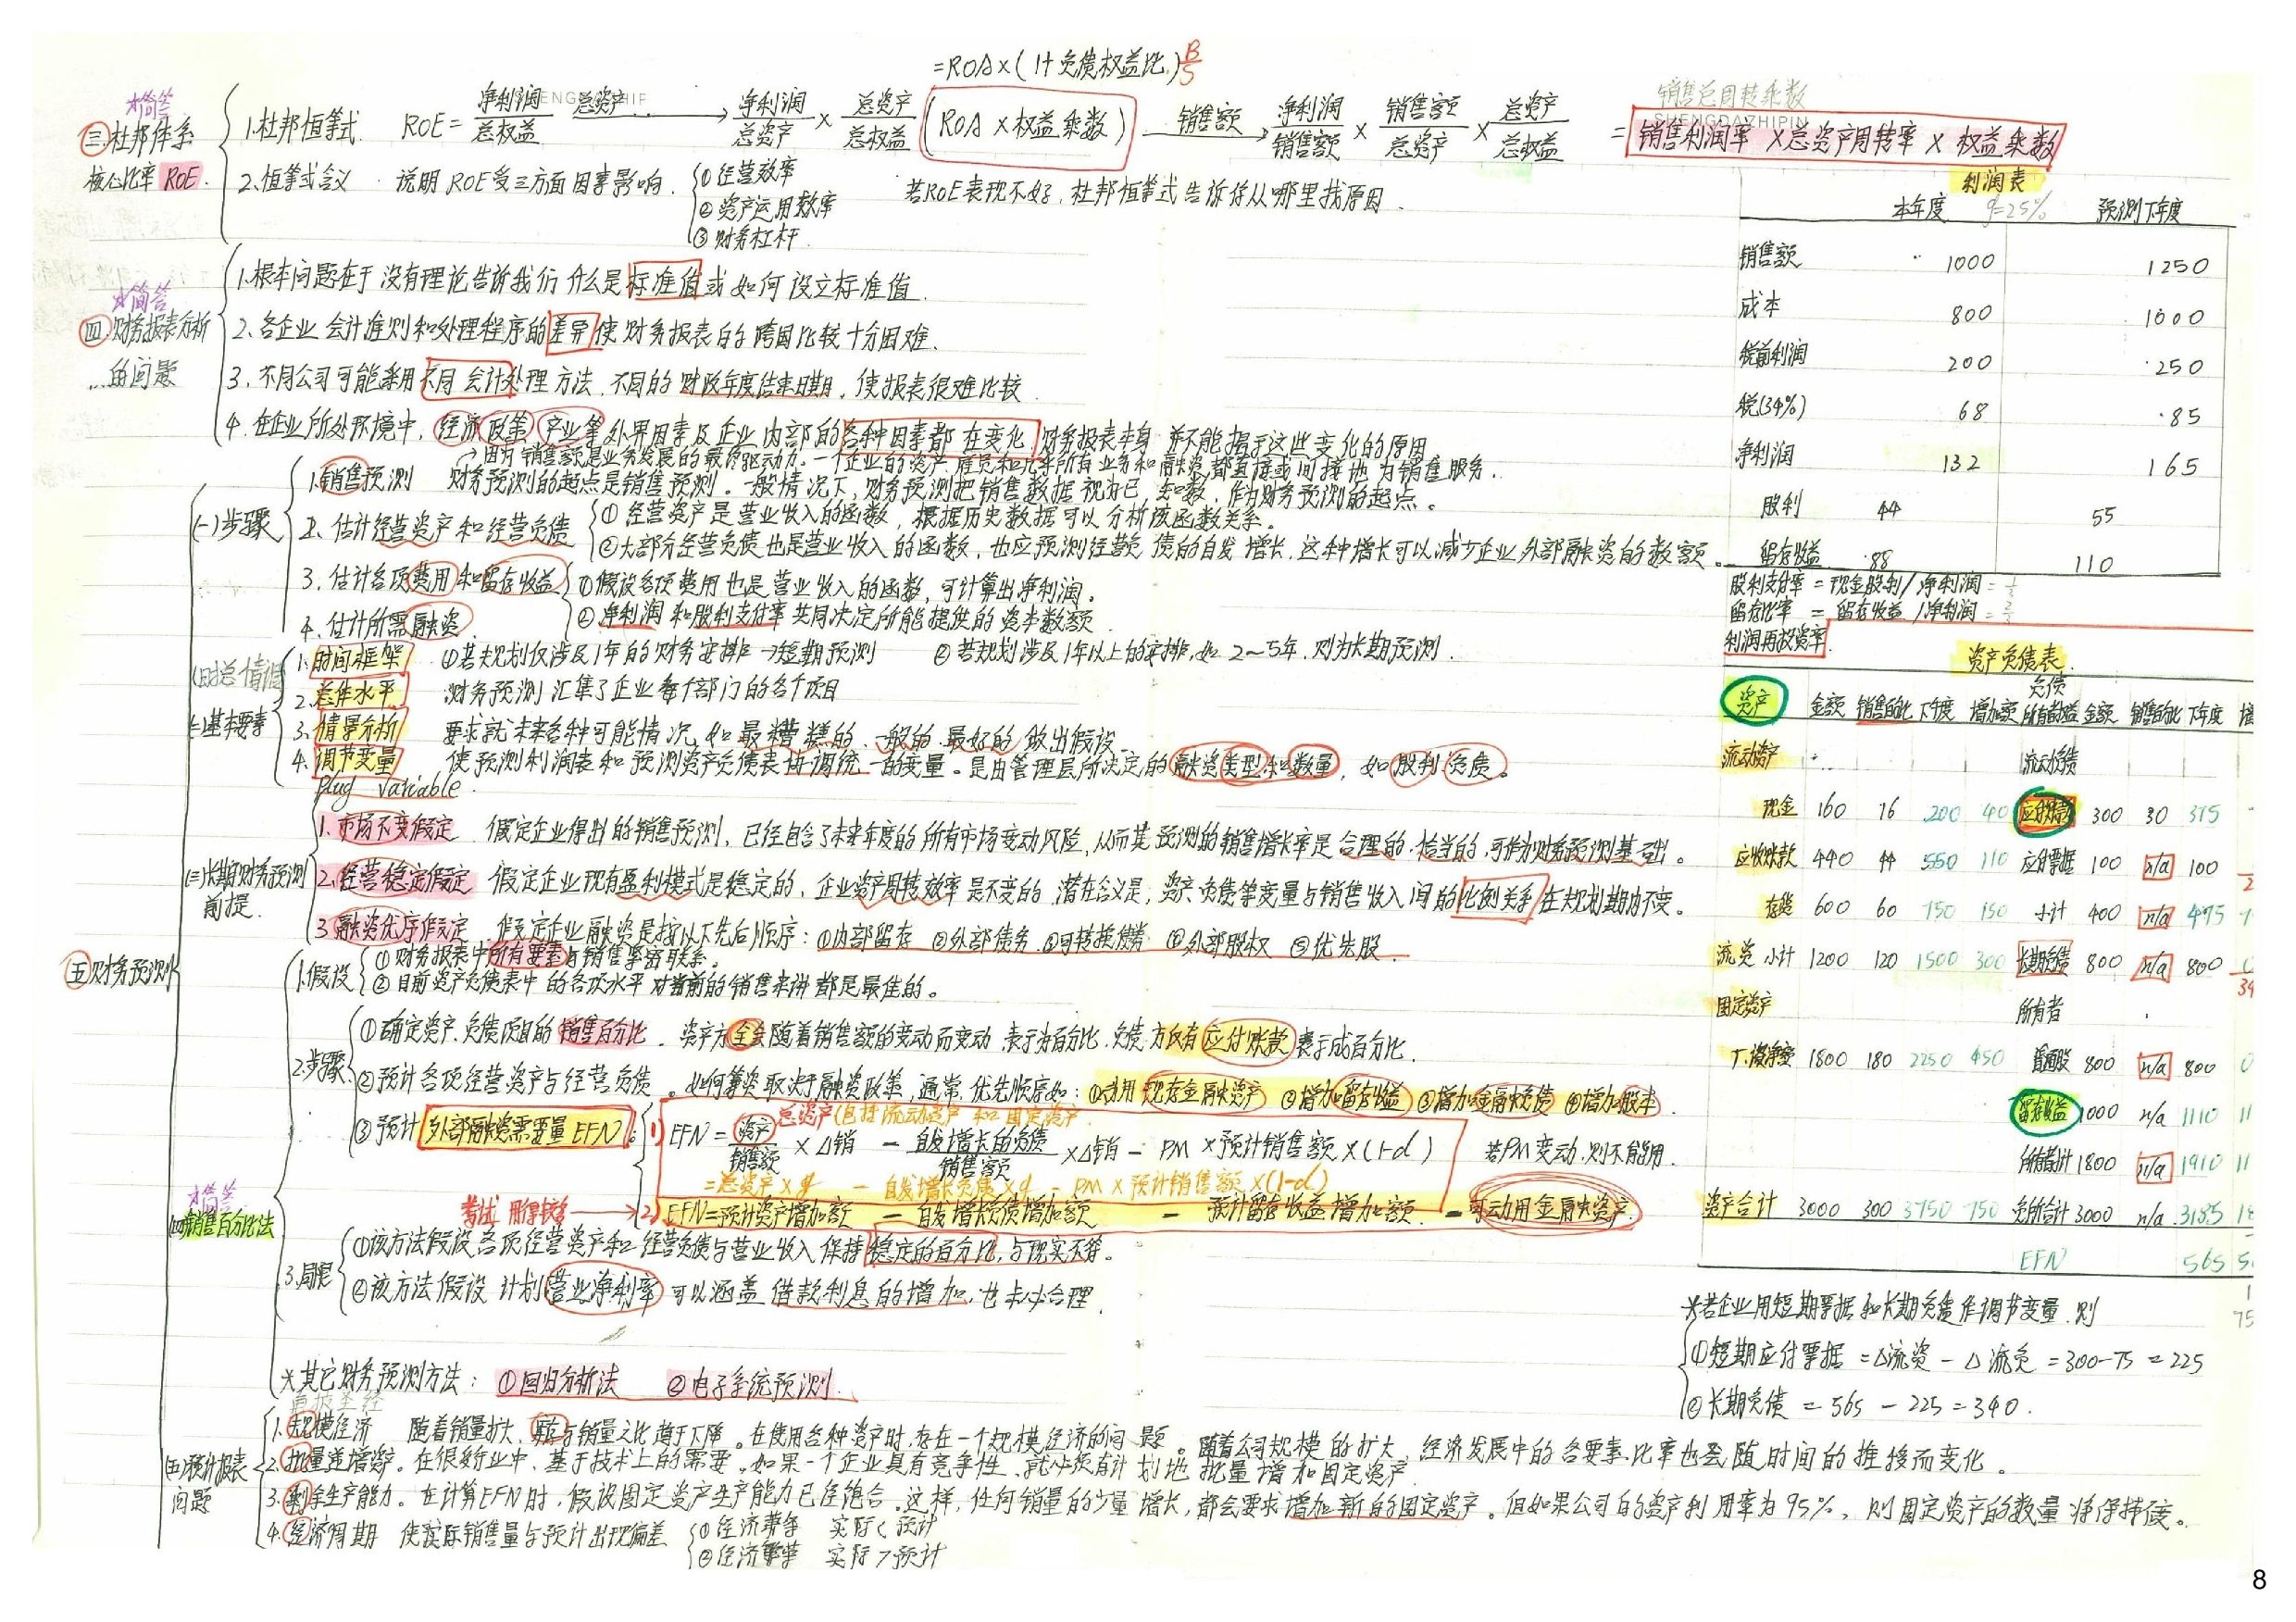 =ROA×(1+负债权益比)B/S
*简答
㊂杜邦体系
核心比率 ROE.
1.杜邦恒等式. ROE=净利润/总权益 总资产→ 净利润/总资产 × 总资产/总权益 (ROA×权益乘数) 销售额→ 净利润/销售额 × 销售额/总资产 × 总资产/总权益 = 销售利润率×总资产周转率×权益乘数
销售总周转乘数
SHENGDAZHIPIN
2.恒等式含义 . 说明ROE受三方面因素影响.
①经营效率
②资产运用效率
③财务杠杆.
若ROE表现不好,杜邦恒等式告诉你从哪里找原因.
*简答
㊃财务报表分析
的问题
1.根本问题在于没有理论告诉我们什么是标准值或如何设立标准值.
2.各企业会计准则和处理程序的差异使财务报表的跨国比较十分困难.
3.不同公司可能采用不同会计处理方法,不同的财政年度结束日期,使报表很难比较.
4.在企业所处环境中,经济政策产业等外界因素及企业内部的各种因素都在变化,财务报表本身并不能揭示这些变化的原因
㊄财务预测
(一)步骤
→因为销售额是业务发展的最终驱动力.一个企业的资产、雇员和几乎所有业务和融资,都直接或间接地为销售服务.
1.销售预测 财务预测的起点是销售预测。一般情况下,财务预测把销售数据视为已知数,作为财务预测的起点。
2.估计经营资产和经营负债
①经营资产是营业收入的函数,根据历史数据可以分析该函数关系。
②大部分经营负债也是营业收入的函数,也应预测经营负债的自发增长,这种增长可以减少企业外部融资的数额.
3.估计各项费用和留存收益
①假设各项费用也是营业收入的函数,可计算出净利润。
②净利润和股利支付率共同决定所能提供的资本数额
4.估计所需融资
(时总情调)
(二)基本要素
1.时间框架 ①若规划仅涉及1年的财务安排→短期预测 ②若规划涉及1年以上的安排,如2~5年,则为长期预测.
2.总体水平 财务预测汇集了企业每个部门的各个项目
3.情景分析 要求就未来各种可能情况,如最糟糕的、一般的、最好的做出假设
4.调节变量 使预测利润表和预测资产负债表协调统一的变量.是由管理层所决定的融资类型和数量,如股利、负债。
plug variable.
(三)长期财务预测
前提.
1.市场不变假定 假定企业得出的销售预测,已经包含了未来年度的所有市场变动风险,从而其预测的销售增长率是合理的、恰当的,可作为财务预测基础。
2.经营稳定假定 假定企业现有盈利模式是稳定的,企业资产周转效率是不变的.潜在含义是;资产、负债等变量与销售收入间的比例关系在规划期内不变。
3.融资优序假定 假定企业融资是按以下先后顺序:①内部留存 ②外部债务 ③可转换债券 ④外部股权 ⑤优先股.
*简答
(四)销售百分比法
1.假设
①财务报表中所有要素与销售紧密联系。
②目前资产负债表中的各项水平对当前的销售来讲都是最佳的。
2.步骤
①确定资产、负债项目的销售百分比. 资产方全会随着销售额的变动而变动,表示为百分比.负债方仅有应付账款表示成百分比.
②预计各项经营资产与经营负债。如何筹资取决于融资政策,通常,优先顺序如:①动用现存金融资产 ②增加留存收益 ③增加金融负债 ④增加股本.
总资产(包括流动资产和固定资产
③预计外部融资需要量EFN:
1) EFN=资产/销售额×△销 − 自发增长的负债/销售额×△销 − PM×预计销售额×(1-d) 若PM变动,则不能用.
=总资产×g − 自发增长负债×g − PM×预计销售额×(1-d)
考试用得较多→2) EFN=预计资产增加额 − 自发增长负债增加额 − 预计留存收益增加额. − 可动用金融资产.
3.局限
①该方法假设各项经营资产和经营负债与营业收入保持稳定的百分比,与现实不符。
②该方法假设计划营业净利率可以涵盖借款利息的增加,也未必合理.
*其它财务预测方法: ①回归分析法 ②电子系统预测.
(五)预计报表
问题
1.规模经济 随着销量扩大,与销量之比趋于下降。在使用各种资产时,存在一个规模经济的问题。随着公司规模的扩大,经济发展中的各要素比率也会随时间的推移而变化。
2.批量递增资产。在很多行业中,基于技术上的需要,如果一个企业具有竞争性,就必须有计划地批量增加固定资产.
3.剩余生产能力。在计算EFN时,假设固定资产生产能力已经饱合.这样,任何销量的少量增长,都会要求增加新的固定资产。但如果公司的资产利用率为95%,则固定资产的数量将保持不变。
4.经济周期 使实际销售量与预计出现偏差
①经济萧条 实际<预计
②经济繁荣 实际>预计
利润表
本年度 g=25% 预测下年度
销售额 1000 1250
成本 800 1000
税前利润 200 250
税(34%) 68 85
净利润 132 165
股利 44 55
留存收益 88 110
股利支付率=现金股利/净利润=1/3
留存比率=留存收益/净利润=2/3
利润再投资率
资产负债表
资产 金额 销售百比 下年度 增加额 负债所有者权益 金额 销售百比 下年度 增
流动资产 流动负债
现金 160 16 200 40 应付账款 300 30 375
应收账款 440 44 550 110 应付票据 100 n/a 100
存货 600 60 750 150 小计 400 n/a 475
流资小计 1200 120 1500 300 长期负债 800 n/a 800
固定资产 所有者
厂.设净额 1800 180 2250 450 普通股 800 n/a 800 0
留存收益 1000 n/a 1110 11
所有者计 1800 n/a 1910 11
资产合计 3000 300 3750 750 负所合计 3000 n/a 3185 18
EFN 565 5
*若企业用短期票据和长期负债作调节变量,则
①短期应付票据=△流资−△流负=300-75=225
②长期负债=565-225=340.
8